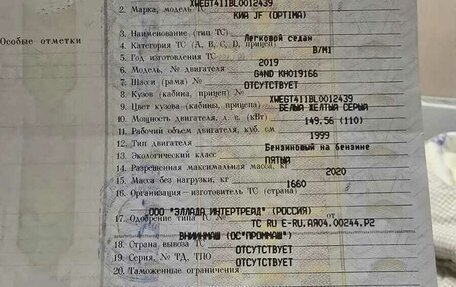 XWEGT411BL0012439
2. Марка, модель ТС КИА JF (OPTIMA)
Особые отметки
3. Наименование (тип ТС) Легковой седан
4. Категория ТС (А, В, С, D, прицеп) B/M1
5. Год изготовления ТС 2019
6. Модель, № двигателя G4ND KH019166
7. Шасси (рама) № ОТСУТСТВУЕТ
8. Кузов (кабина, прицеп) № XWEGT411BL0012439
9. Цвет кузова (кабины, прицепа) БЕЛЫЙ ЖЕЛТЫЙ СЕРЫЙ
10. Мощность двигателя, л. с. (кВт) 149.56 (110)
11. Рабочий объем двигателя, куб. см 1999
12. Тип двигателя Бензиновый на бензине
13. Экологический класс ПЯТЫЙ
14. Разрешенная максимальная масса, кг 2020
15. Масса без нагрузки, кг 1660
16. Организация—изготовитель ТС (страна)
ООО "ЭЛЛАДА ИНТЕРТРЕЙД" (РОССИЯ)
17. Одобрение типа ТС № от
ТС RU E-RU.АЯ04.00244.P2
ВНИИНМАШ (ОС"ПРОММАШ")
18. Страна вывоза ТС ОТСУТСТВУЕТ
19. Серия, № ТД, ТПО ОТСУТСТВУЕТ
20. Таможенные ограничения ОТСУТСТВУЕТ